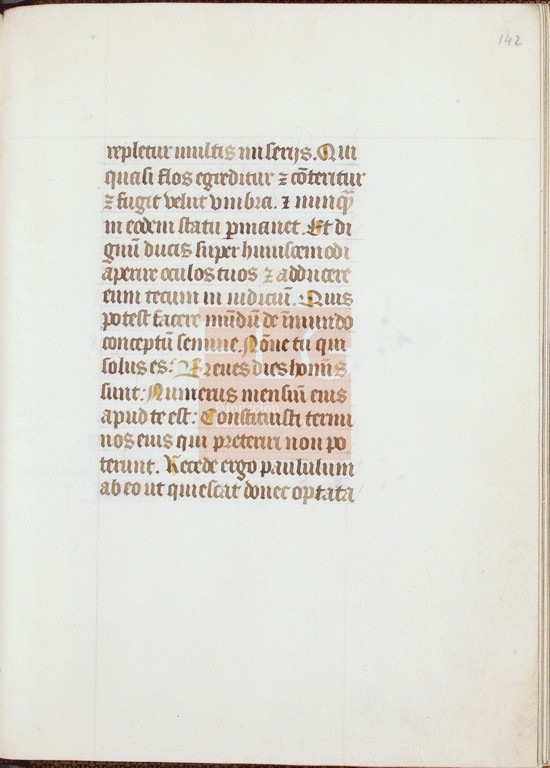 142
repletur multis miserijs. Qui
quasi flos egreditur ⁊ cōteritur
⁊ fugit velut vmbra. ⁊ nunq̄
in eodem statu ꝑmanet. Et di
gnū ducis super huiuscemodi
aperire oculos tuos ⁊ adducere
eum tecum in iudiciū. Quis
potest facere mūdū de īmundo
conceptū semine. Nōne tu qui
solus es: Breues dies hominis
sunt: Numerus mensiū eius
apud te est: Constituisti termi
nos eius qui preteriri non po
terunt. Recede ergo paululum
ab eo ut quiescat donec optata